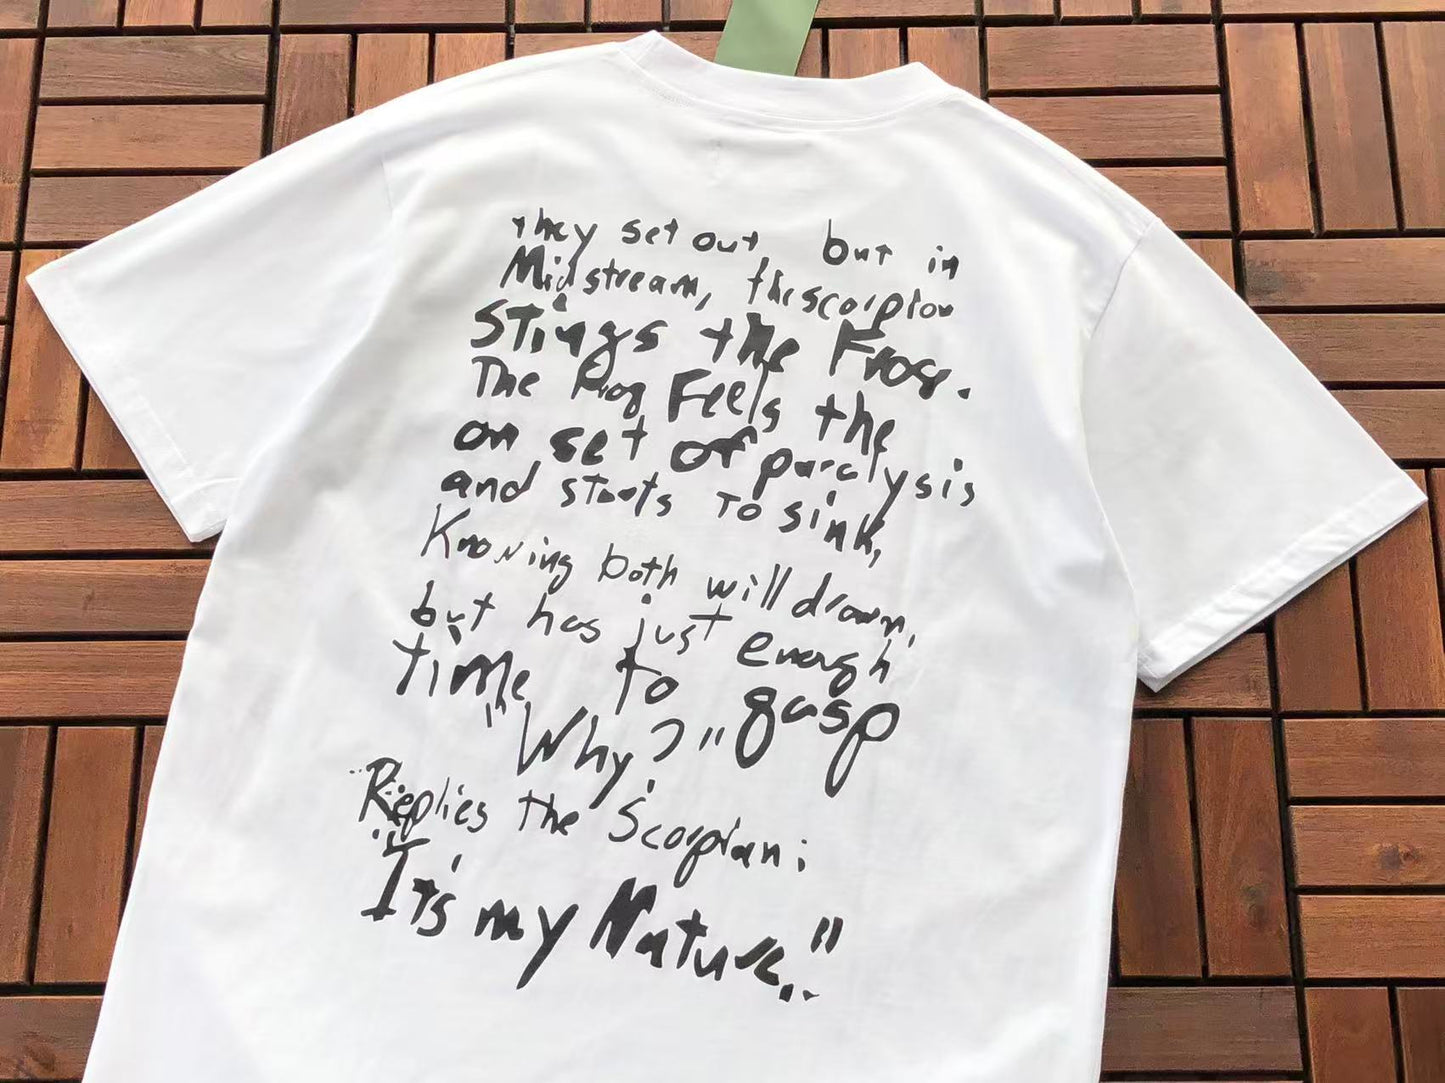 they set out, but in
Midstream, the scorpion
Stings the Frog.
The Frog Feels the
on set of paralysis
and starts To sink,
Knowing both will drown,
but has just enough
time to gasp
"Why?"
Replies the Scorpian:
"It's my Nature.."